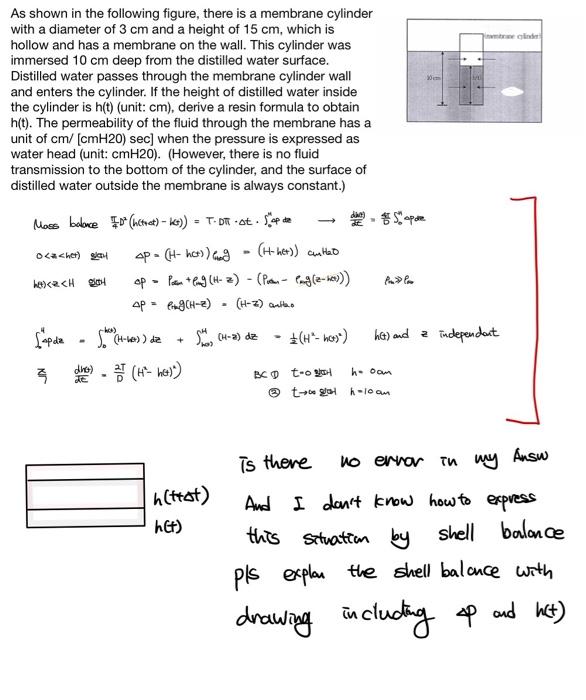 As shown in the following figure, there is a membrane cylinder
with a diameter of 3 cm and a height of 15 cm, which is
hollow and has a membrane on the wall. This cylinder was
immersed 10 cm deep from the distilled water surface.
Distilled water passes through the membrane cylinder wall
and enters the cylinder. If the height of distilled water inside
the cylinder is h(t) (unit: cm), derive a resin formula to obtain
h(t). The permeability of the fluid through the membrane has a
unit of cm/ [cmH20) sec] when the pressure is expressed as
water head (unit: cmH20). (However, there is no fluid
transmission to the bottom of the cylinder, and the surface of
distilled water outside the membrane is always constant.)
(membrane cylinder)
10 cm
h(t)
Mass balance π/4 D² (h(t+Δt) - h(t)) = T · Dπ · Δt · ∫₀ᴴ Δp dz → dh(t)/dt = 4T/D ∫₀ᴴ Δp dz
0<z<h(t) 일때 Δp = (H - h(t)) g = (H-h(t)) cmH₂O
h(t)<z<H 일때 Δp = Patm + g(H-z) - (Patm - g(z-h(t)))
Δp = g(H-z) = (H-z) cmH₂O
∫₀ᴴ Δp dz = ∫₀ʰ⁽ᵗ⁾ (H-h(t)) dz + ∫ₕ₍ₜ₎ᴴ (H-z) dz = ½(H² - h(t)²) h(t) and z independent
즉 dh(t)/dt = 2T/D (H² - h(t)²) BC ① t=0 일때 h = 0cm
② t→∞ 일때 h = 10cm
h(t+Δt)
h(t)
is there no error in my Answ
And I don't know how to express
this situation by shell balance
pls explan the shell balance with
drawing including Δp and h(t)